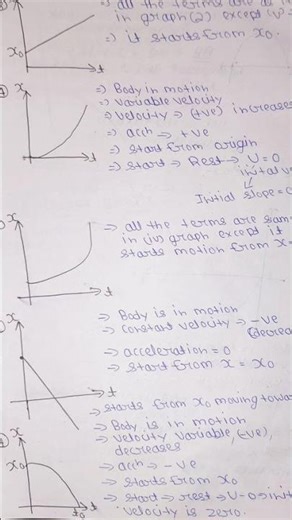 ⇒ all the terms are as in
in graph (2) except
⇒ it starts from x₀
x₀
t
x
⇒ Body in motion
⇒ variable velocity
⇒ velocity → (+ve) increases
⇒ accn → +ve
⇒ start from origin
⇒ start → Rest → U = 0
Initial slope =
t
x
⇒ all the terms are same
in (iv) graph except it
starts motion from x =
t
x
⇒ Body is in motion
⇒ constant velocity → -ve
⇒ acceleration = 0
⇒ start from x = x₀
t
→ starts from x₀ moving
→ Body is in motion
→ velocity variable, (+ve),
decreases
→ accn → -ve
→ starts from x₀
→ start → rest → U = 0
velocity is zero.
x
x₀
t₀
t